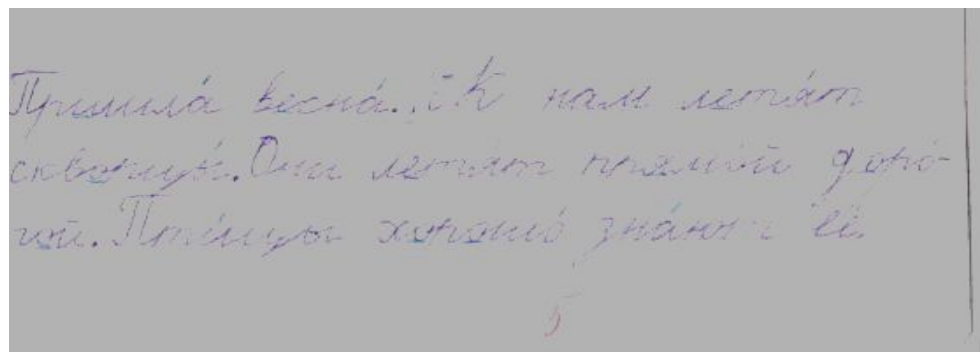 Пришла́ весна́. К нам летя́т
скворцы́. Они летя́т прямо́й доро́-
гой. Пти́цы хорошо́ зна́ют её.
5